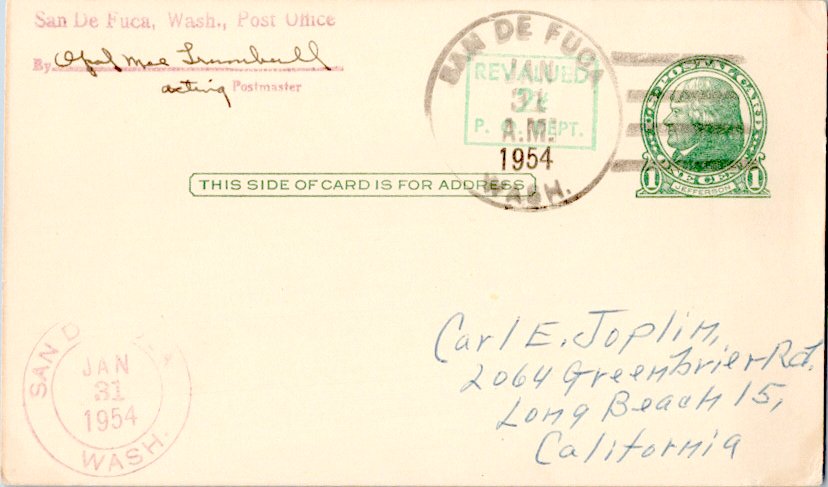 San De Fuca, Wash., Post Office
By Opal Mae Trumbull
acting Postmaster
SAN DE FUCA
JAN
31
A.M.
1954
WASH.
REVALUED
2¢
P. O. DEPT.
U.S. POSTAL CARD
ONE CENT
1 JEFFERSON 1
THIS SIDE OF CARD IS FOR ADDRESS
Carl E. Joplin,
2064 Greenbrier Rd.
Long Beach 15,
California
SAN D
JAN
31
1954
WASH.